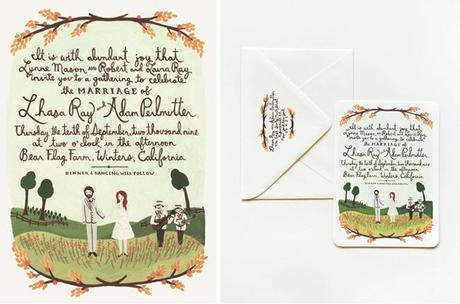 It is with abundant joy that
Lynne Mason and Robert and Laura Ray
invite you to a gathering to celebrate
the MARRIAGE of
Lhasa Ray and Adam Perlmutter
Thursday the tenth of September, two thousand nine
at two o'clock in the afternoon
Bear Flag Farm, Winters, California
DINNER & DANCING WILL FOLLOW
It is with abundant joy that
Lynne Mason and Robert and Laura Ray
invite you to a gathering to celebrate
the MARRIAGE of
Lhasa Ray and Adam Perlmutter
Thursday the tenth of September, two thousand nine
at two o'clock in the afternoon
Bear Flag Farm, Winters, California
DINNER & DANCING WILL FOLLOW